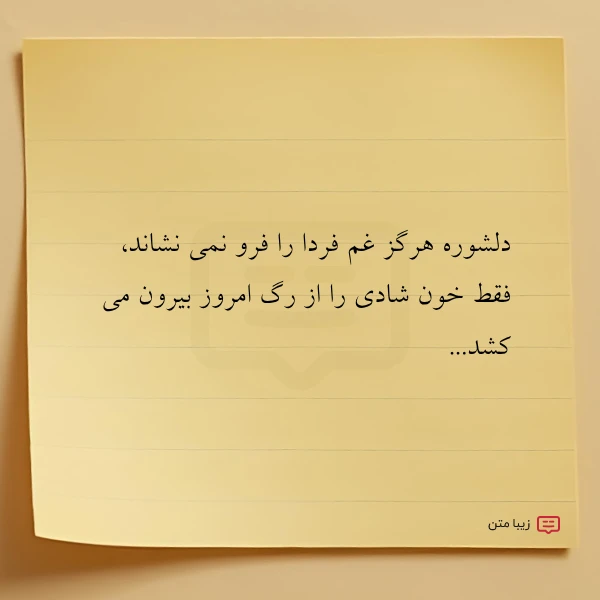 دلشوره هرگز غم فردا را فرو نمی نشاند،
فقط خون شادی را از رگ امروز بیرون می
کشد...
زیبا متن